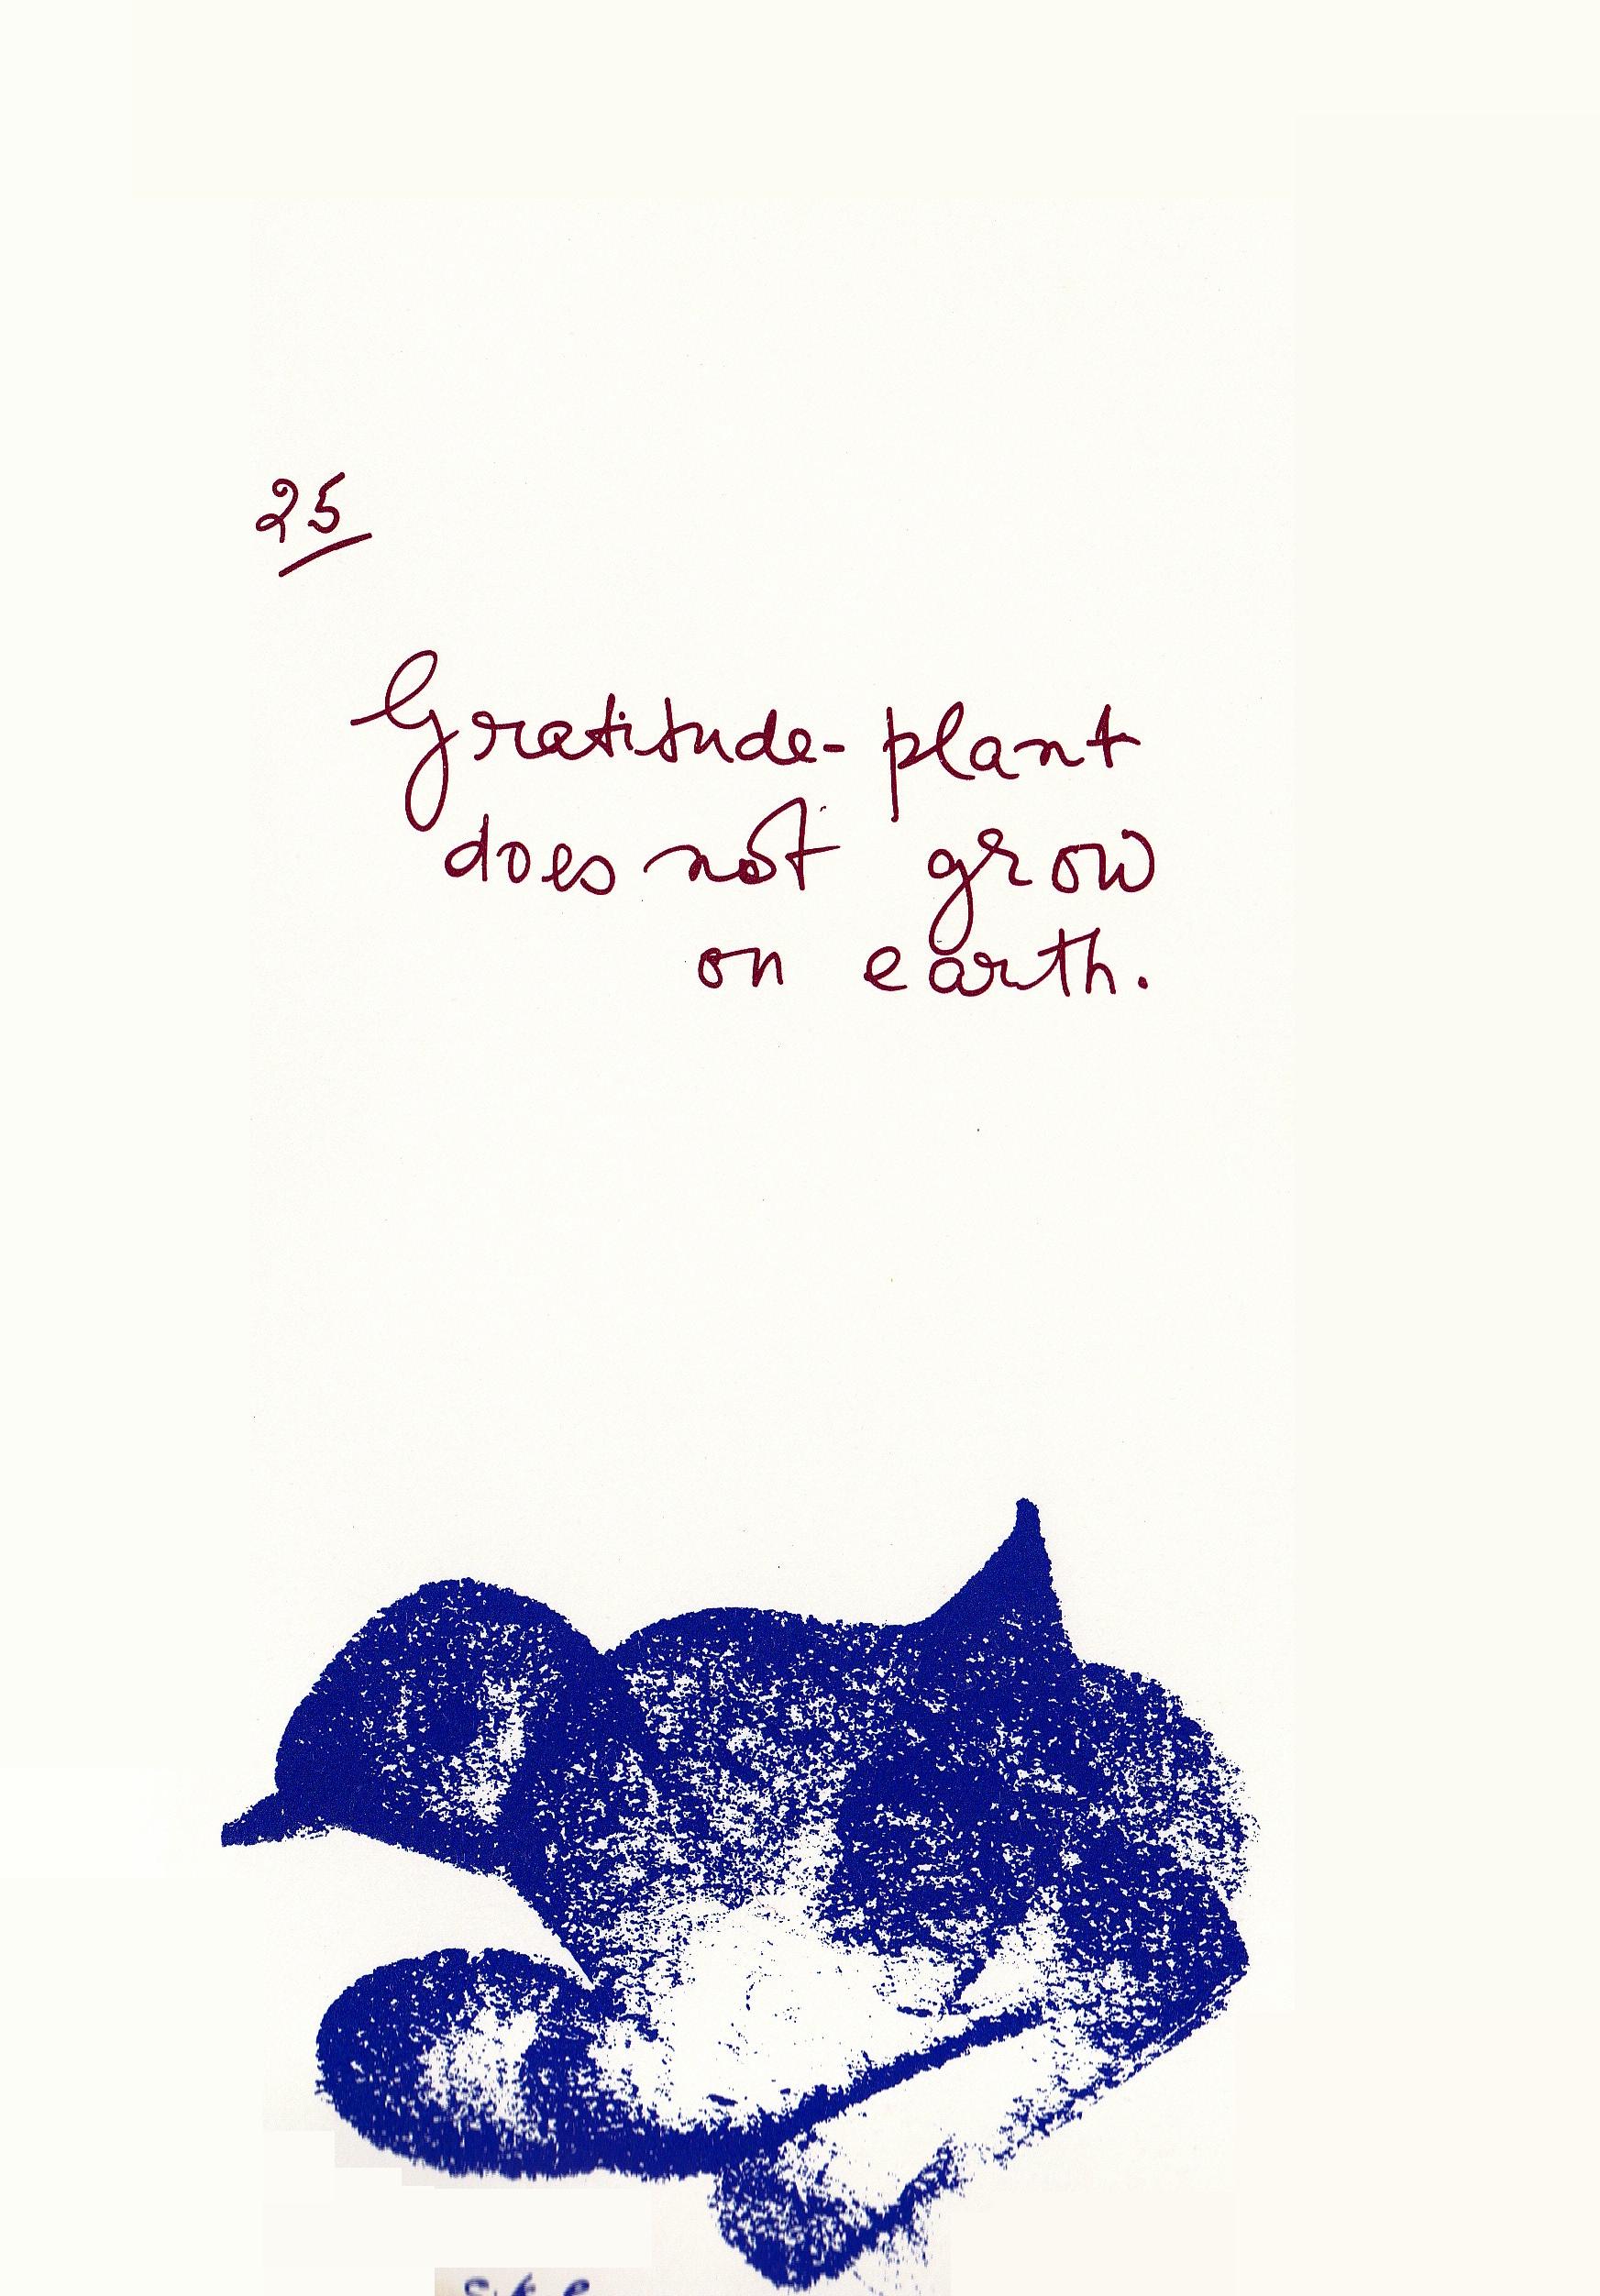 25
Gratitude-plant
does not grow
on earth.